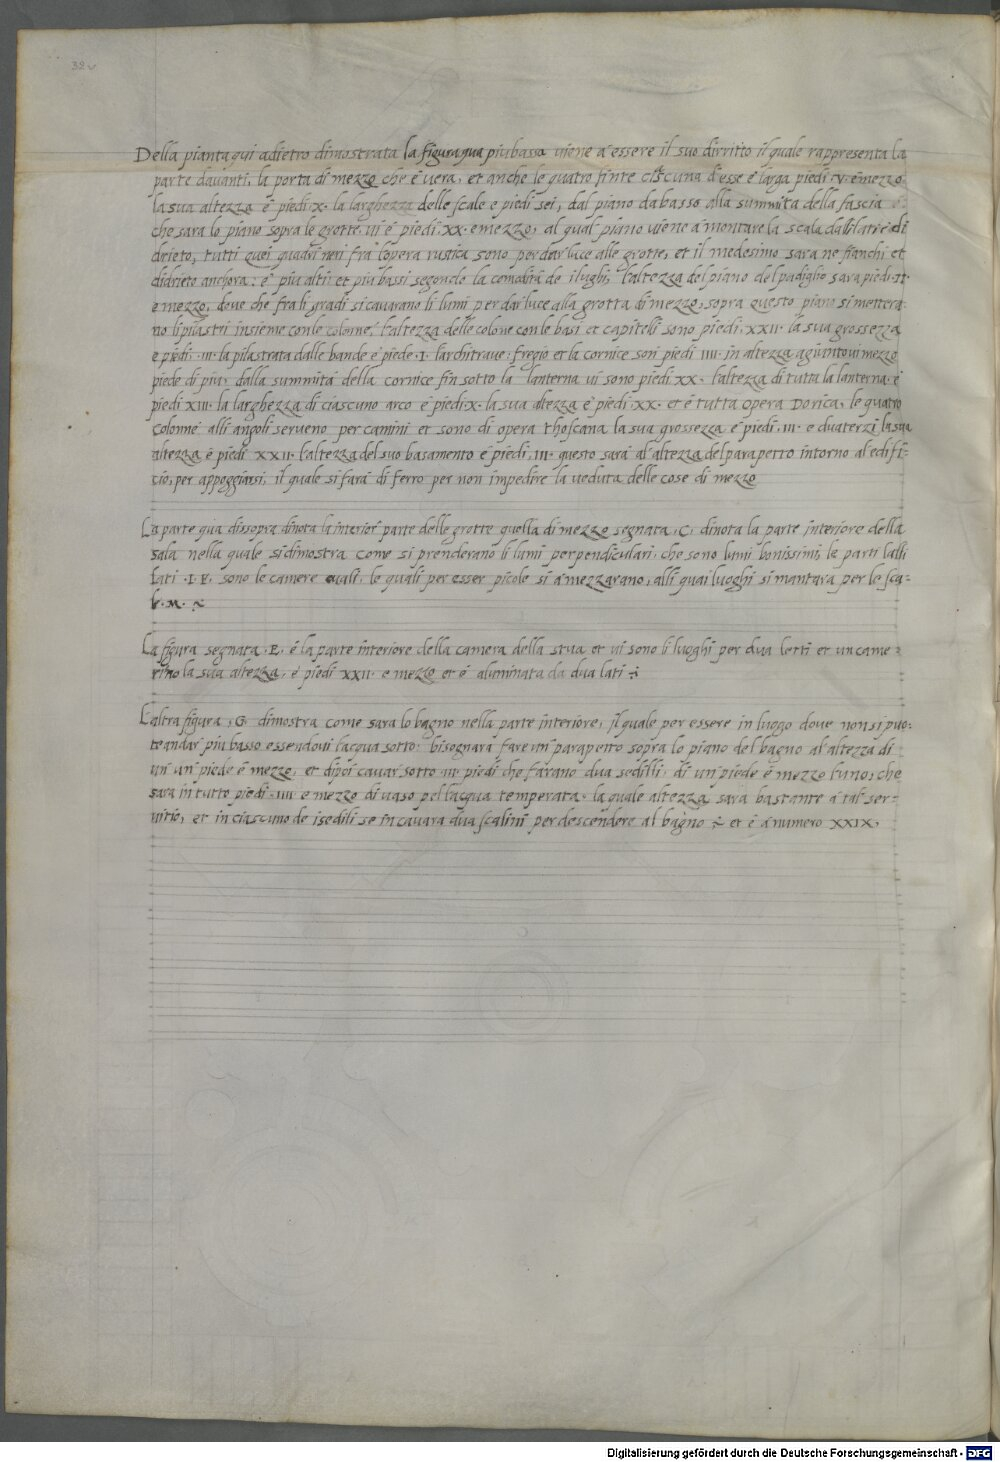 32v
Della pianta qui adietro dimostrata la figura qua piu bassa uiene a essere il suo dirritto il quale rappresenta la
parte dauanti, la porta di mezzo che è uera, et anche le quatro finte ciascuna d'esse è larga piedi .V. e mezzo
la sua altezza è piedi .X. la larghezza delle scale e piedi sei, dal piano dabasso alla summita della fascia
che sara lo piano sopra le grotte. ui è piedi .XX. e mezzo, al qual piano uiene a montare la scala dalli lati e di
drieto, tutti quei quadri neri fra l'opera rustica sono per dar luce alle grotte, et il medesimo sara ne fianchi et
didrieto anchora: e piu alti et piu bassi segondo la comodità de i luoghi, l'altezza del piano del padiglio sara piedi .II.
e mezzo, doue che fra li gradi si cauarano li lumi per dar luce alla grotta di mezzo, sopra questo piano si mettera-
no li pilastri insieme con le colonne, l'altezza delle colone con le basi et capitelli sono piedi .XXII. la sua grossezza
è piedi .III. la pilastrata dalle bande è piede .I. l'architraue fregio et la cornice son piedi .IIII. in altezza agiuntoui mezzo
piede di piu, dalla summita della cornice fin sotto la lanterna ui sono piedi XX. l'altezza di tutta la lanterna è
piedi XIII. la larghezza di ciascuno arco è piedi .X. la sua altezza è piedi .XX. et è tutta opera Dorica, le quatro
colonne alli angoli serueno per camini et sono di opera thoscana la sua grossezza è piedi .III. e dua terzi la sua
altezza è piedi XXII. l'altezza del suo basamento è piedi .III. questo sarà al'altezza del parapetto intorno al'edifi-
cio, per appoggiarsi, il quale si fara di ferro per non impedire la ueduta delle cose di mezzo
La parte qua dissopra dinota la interior parte delle grotte quella di mezzo segnata .C. dinota la parte interiore della
sala nella quale si dimostra come si prenderano li lumi perpendiculari, che sono lumi bonissimi, le parti dalli
lati .I F. sono le camere quali, le quali per esser picole si amezzarano, alli quai luoghi si mantara per le sca-
le .M.
La figura segnata .E. è la parte interiore della camera della stua et ui sono li luoghi per dua letti et un came
rino la sua altezza, è piedi XXII. e mezzo et è aluminata da dua lati
L'altra figura .G. dimostra come sara lo bagno nella parte interiore, il quale per essere in luogo doue non si puo
te andar piu basso essendoui l'acqua sotto: bisognara fare un parapetto sopra lo piano del bagno al altezza di
un' un' piede e mezzo, et dipoi cauar sotto III piedi che farano dua sedilli, di un' piede e mezzo l'uno, che
sara in tutto piedi .IIII. e mezzo di uaso pel l'acqua temperata. la quale altezza sarà bastante a tal' ser-
uitio, et in ciascuno de i sedili se in cauara dua scalini per descendere al bagno et è a numero XXIX.
Digitalisierung gefördert durch die Deutsche Forschungsgemeinschaft - DFG